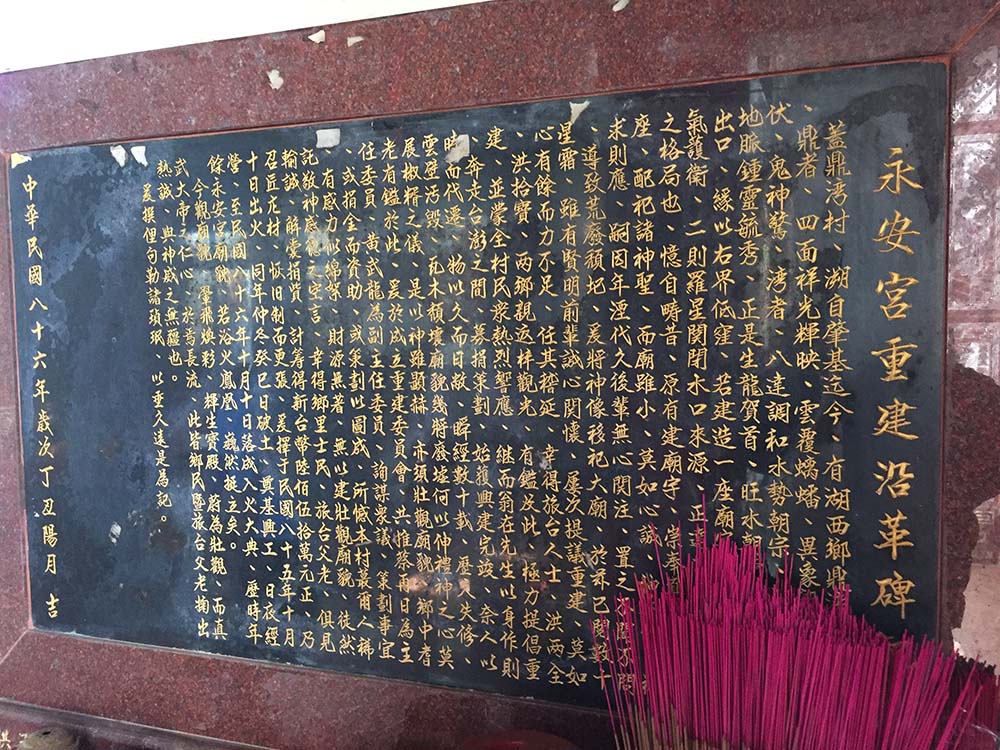 永安宮重建沿革碑
蓋鼎灣村、湖自肇基迄今、有湖西鄉鼎灣
、鼎者、四面祥光輝映、雲覆蟠蟠、異象
伏、鬼神驚、灣者、八達調和水勢朝宗
地脈鍾靈毓秀、正是生龍賀首、旺水朝
出口、緣以右界低窪、若建造一座廟
氣護衛、二則羅星関閉水口來源、正
之格局也、憶自疇昔、原有建廟宇、崇奉
座、配祀諸神聖、而廟雖小、莫如心誠、
求則應、嗣因年湮代久後輩無心関注、置之不聞不問
、導致荒廢頹圮、爰將神像移祀大廟、於茲已閱數十
星霜、雖有賢明前輩誠心関懷、屢次提議重建、莫如
心有餘而力不足、任其稽延、幸得旅台人士、洪兩全
、洪拾寶、兩鄉親返梓觀光、有鑑及此、極力提倡重
建、並蒙全村民衆熱烈響應、継而翁在先生以身作則
、奔走台澎之間、募捐策劃、始獲興建完竣、奈人以
時而代遷、物以久而日敝、瞬經數十載、歷久失修、
雲壁污毀、瓦木頹壞廟貌幾將廢墟何以伸禮神之心莫
展椒糈之儀、是以神雖顯赫、亦須壯觀廟貌、鄉中耆
老有鑑於此、爰於成立重建委員會、共推蔡雨日為主
任委員、黃武龍為副主任委員、詢謀衆議、策劃事宜
、或捐金而資助、或策劃以圖成、所憾本村蕞爾人稀
、有感力以綿檠、財源無著、無以建壯觀廟貌、徒然
託敬神感德之空言、幸得鄉里士民、旅台父老、俱見
輸誠、解囊捐貲、計籌得新台幣陸佰伍拾萬元正、乃
召匠庀材、恢旧制而更張、爰擇于民國八十五年十月
十日出火、同年仲冬癸巳日破土、奠基興工、日夜經
營、至民國八十六年十月十日落成入火大典、歷時年
餘永安宮廟貌、若浴火鳳凰、巍然挺立矣。
今觀廟觀、翬飛煥彩、輝生寶殿、蔚為壯觀、而真
武大帝仁心、於焉長流、此皆鄉民暨旅台父老掬出
熱誠、與神威之無疆也。
爰撰俚句勒諸瑱珉、以垂久遠是為記。
中華民國八十六年歲次丁丑陽月　吉